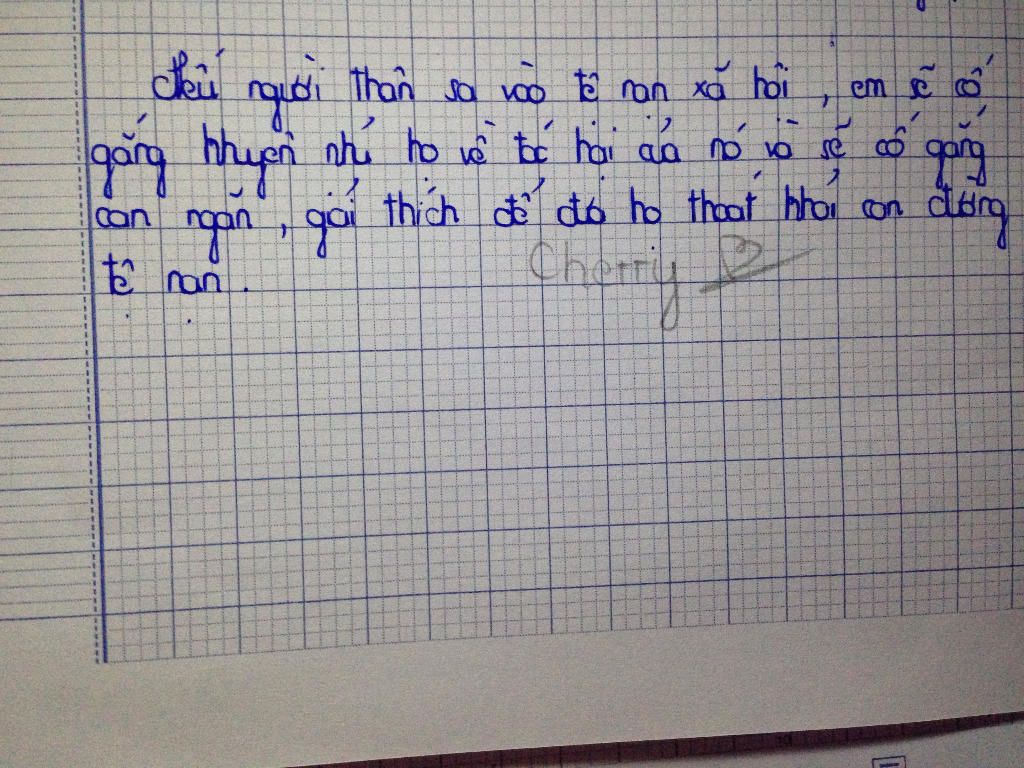 Nếu người thân sa vào tệ nạn xã hội, em sẽ cố
gắng khuyên nhủ họ về tác hại của nó và sẽ cố gắng
can ngăn, giải thích để đó họ thoát khỏi con đường
tệ nạn.
Cherry